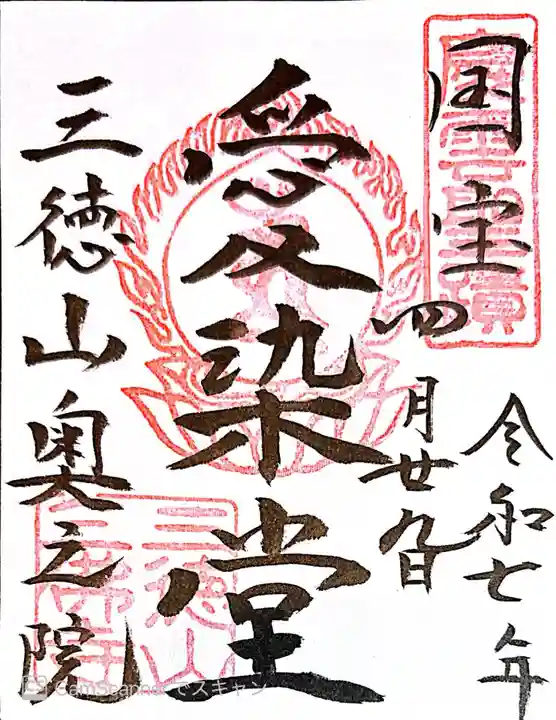 国宝
令和七年
四月廿九日
愛染堂
三徳山奥之院
三徳山
三佛寺
CamScannerでスキャン